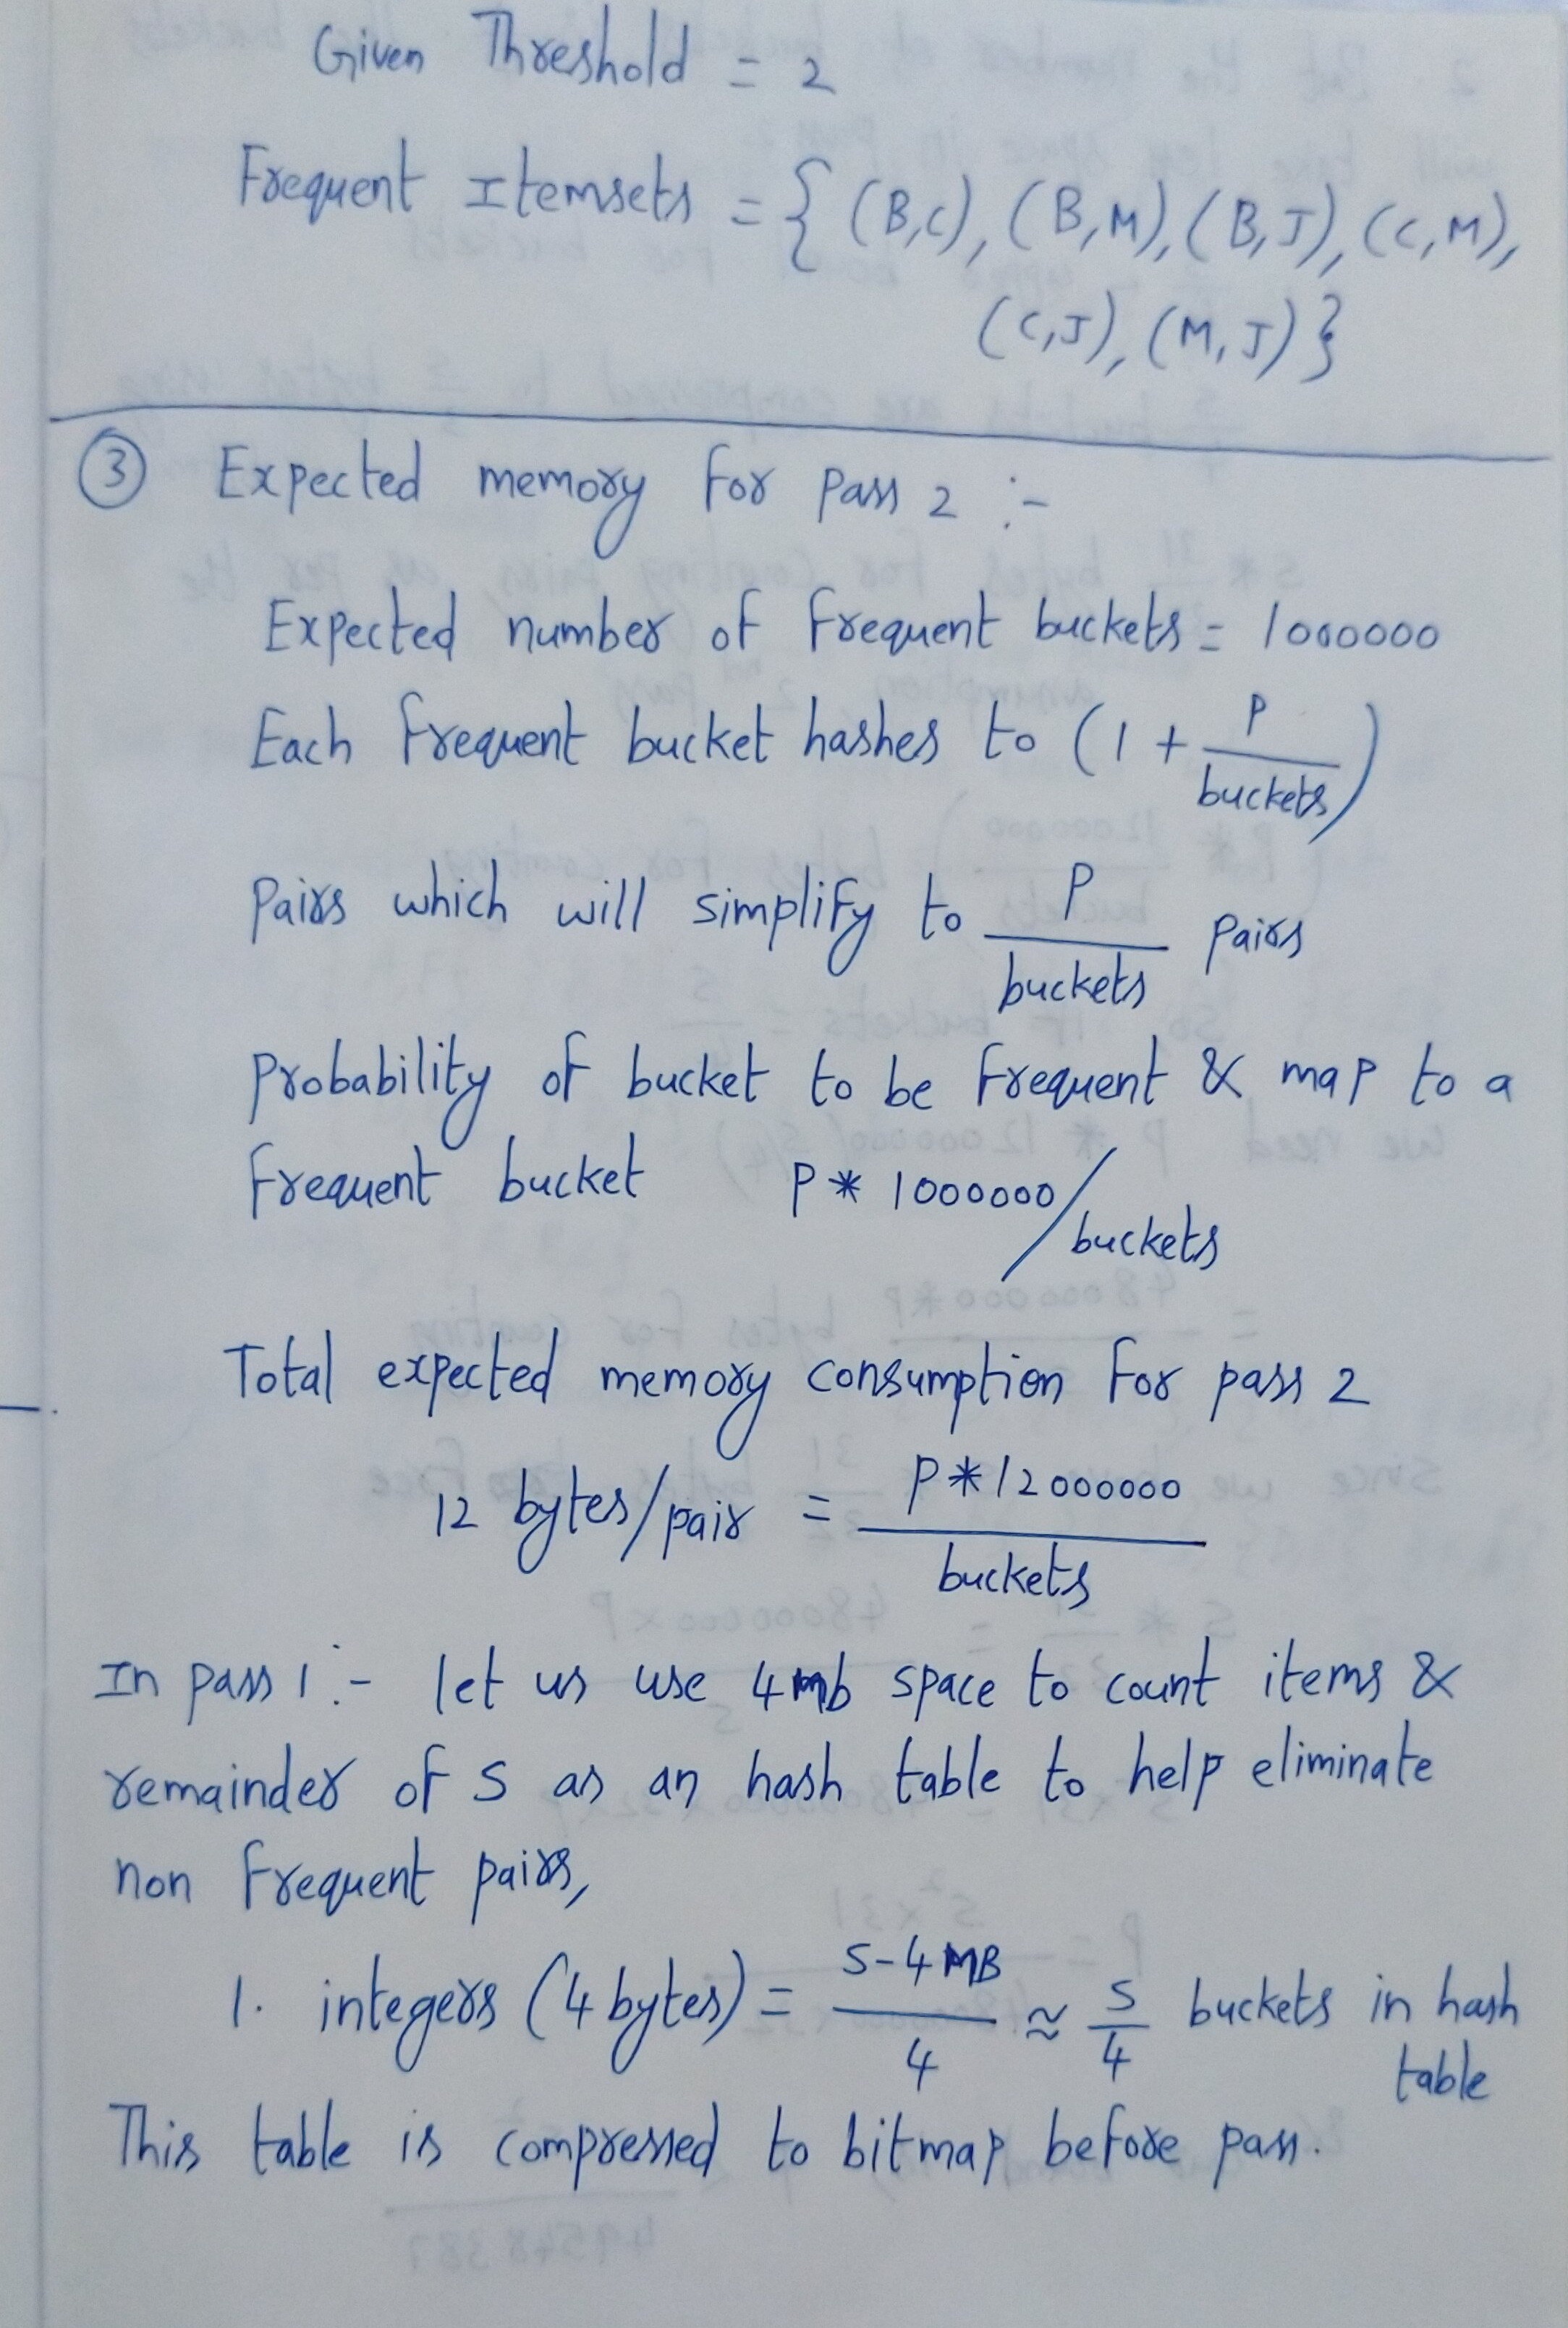 Given Threshold = 2
Frequent Itemsets = { (B,C), (B,M), (B,J), (C,M),
(C,J), (M,J) }
3 Expected memory for pass 2 :-
Expected number of frequent buckets = 1000000
Each frequent bucket hashes to (1 + P/buckets)
Pairs which will simplify to P/buckets pairs
Probability of bucket to be frequent & map to a
frequent bucket P * 1000000/buckets
Total expected memory consumption for pass 2
12 bytes/pair = P*12000000/buckets
In pass 1 :- let us use 4mb space to count items &
remainder of S as an hash table to help eliminate
non frequent pairs,
1. integers (4 bytes) = S-4MB/4 ≈ S/4 buckets in hash
table
This table is compressed to bitmap before pass.